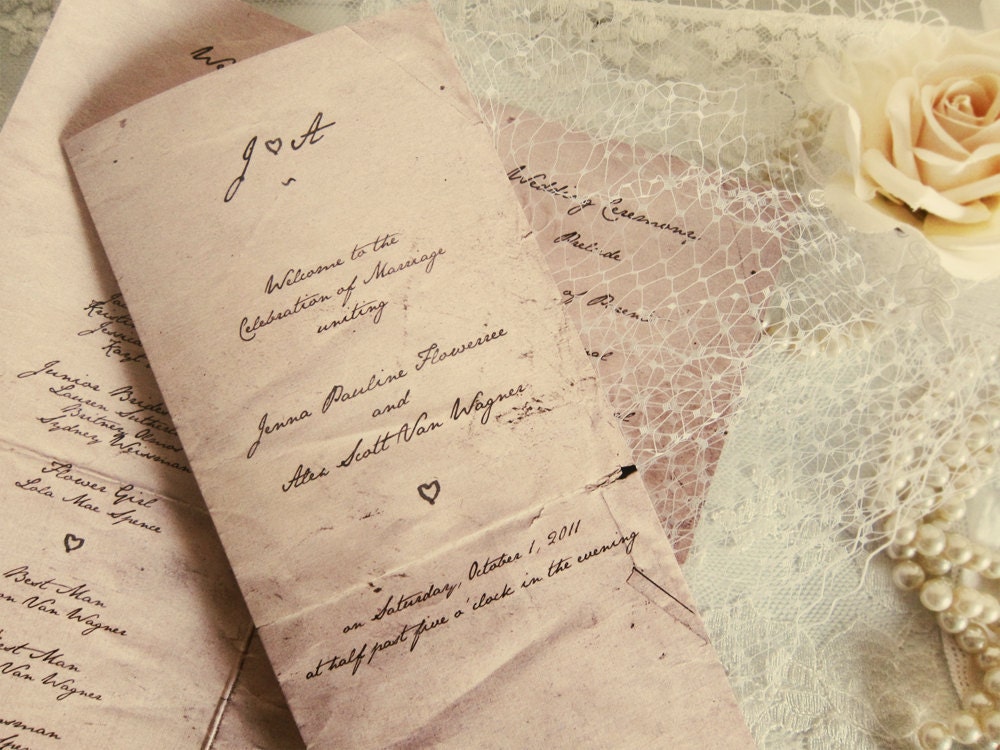 J ♡ A
~
Welcome to the
Celebration of Marriage
uniting
Jenna Pauline Flowerree
and
Alex Scott Van Wagner
♡
on Saturday, October 1, 2011
at half past five o'clock in the evening
Wedding Ceremony
Prelude
of
Junior
Lauren
Britney
Sydney Weissman
Flower Girl
Lola Mae Spence
♡
Best Man
Van Wagner
Man
Van Wagner